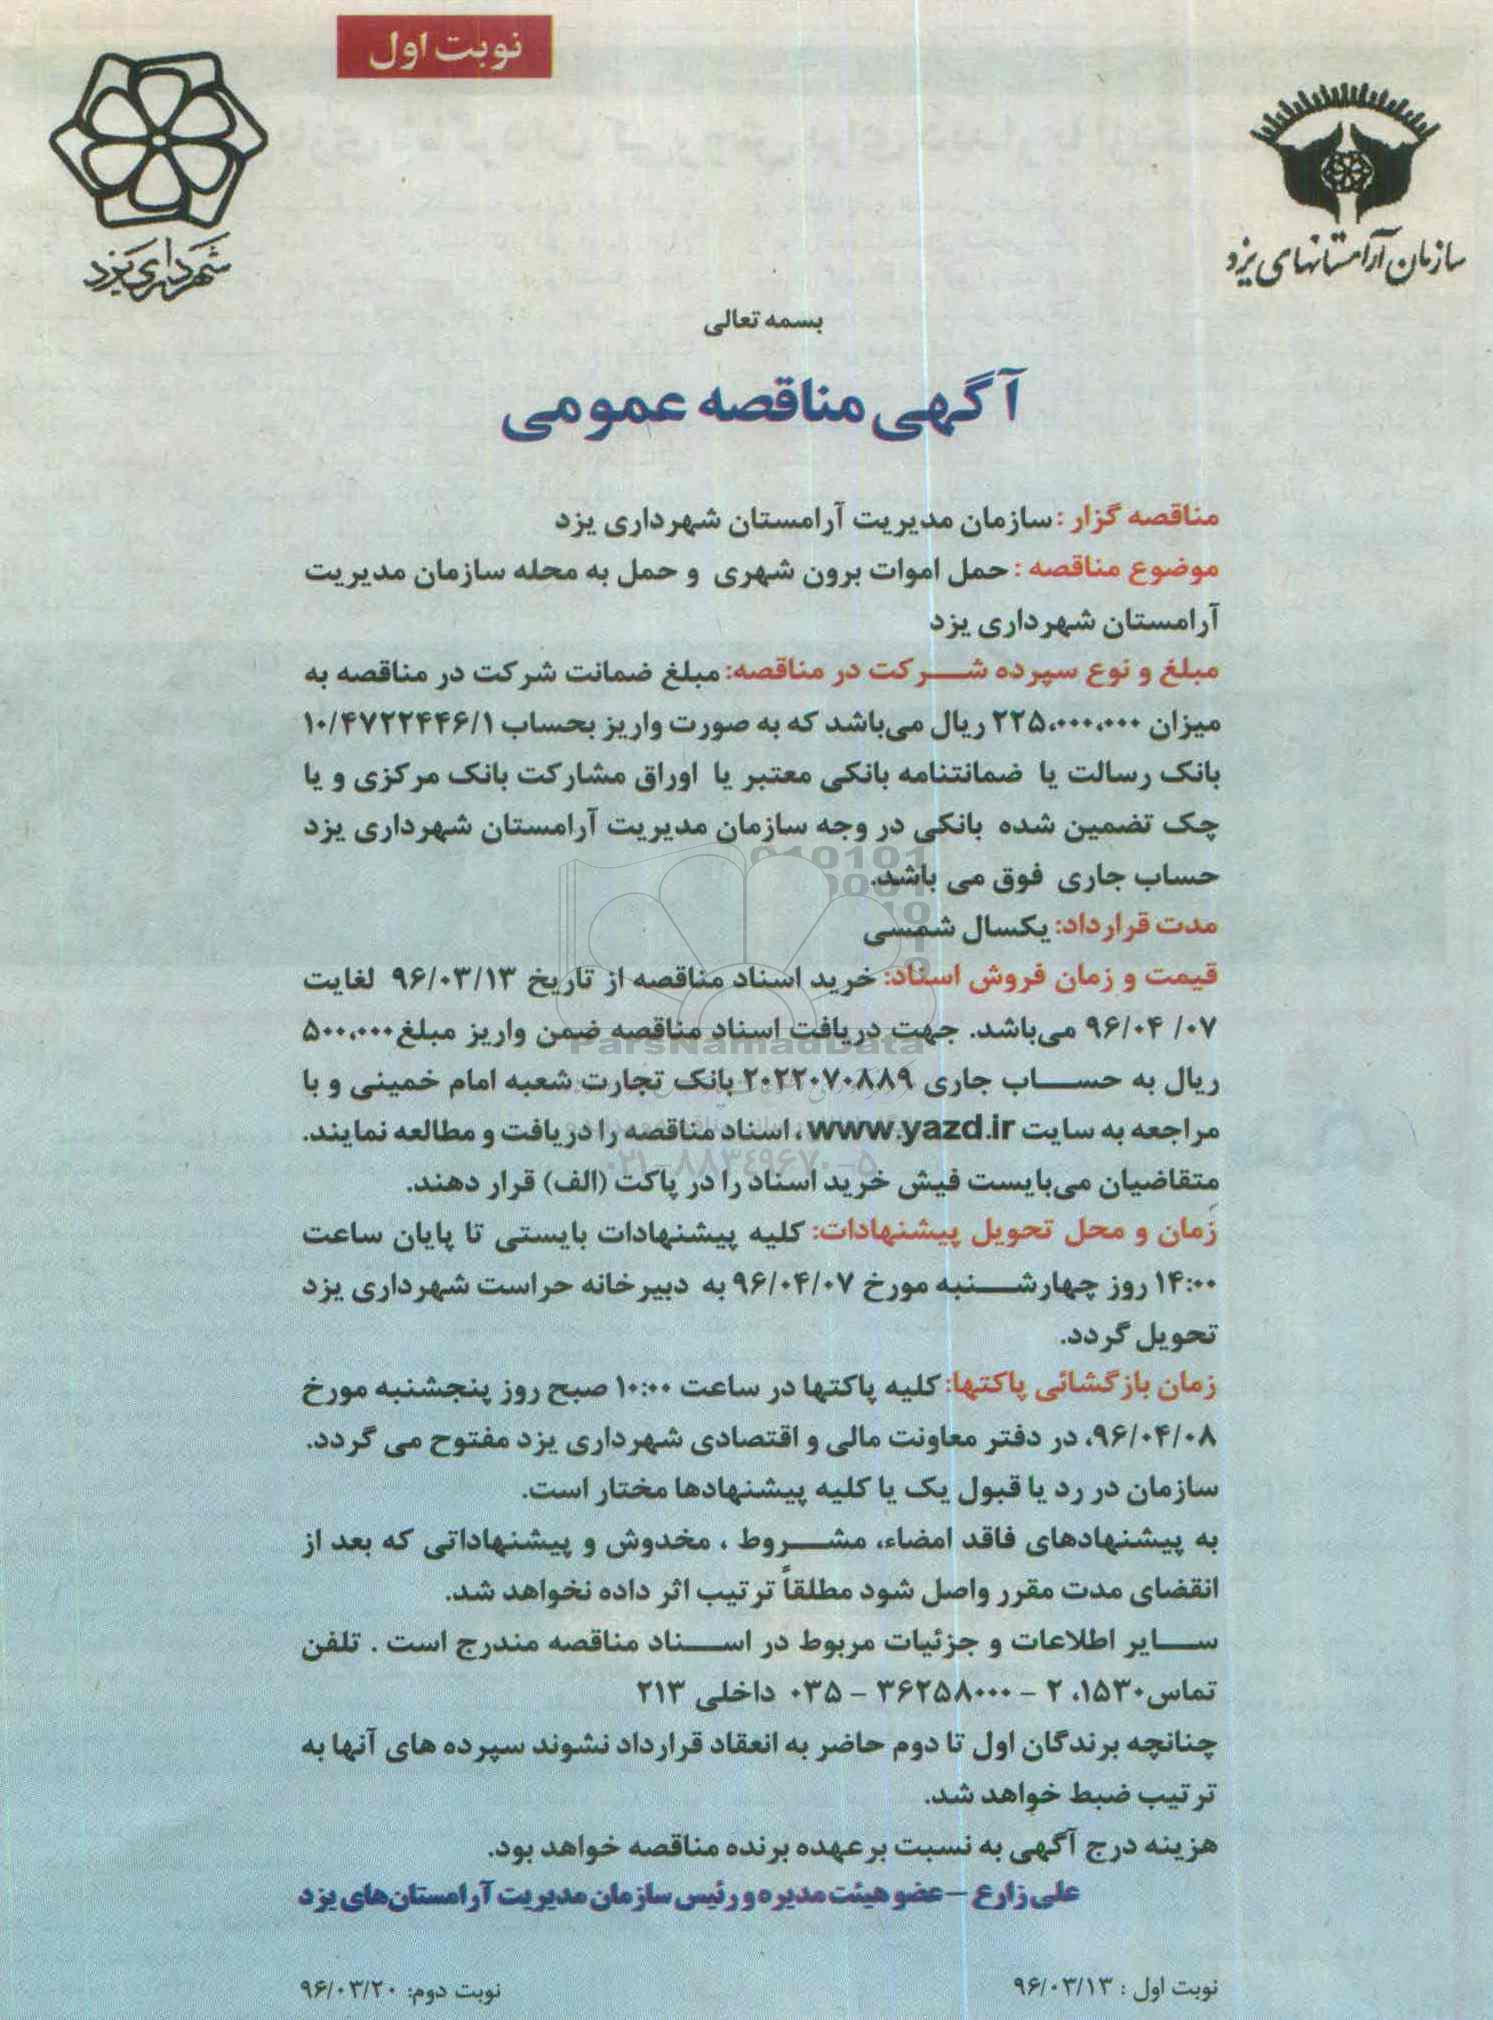 نوبت اول
سازمان آرامستانهای یزد
شهرداری یزد
بسمه تعالی
آگهی مناقصه عمومی
مناقصه گزار : سازمان مدیریت آرامستان شهرداری یزد
موضوع مناقصه : حمل اموات برون شهری و حمل به محله سازمان مدیریت
آرامستان شهرداری یزد
مبلغ و نوع سپرده شرکت در مناقصه: مبلغ ضمانت شرکت در مناقصه به
میزان ۲۲۵،۰۰۰،۰۰۰ ریال می‌باشد که به صورت واریز بحساب ۱۰/۴۷۲۲۴۴۶/۱
بانک رسالت یا ضمانتنامه بانکی معتبر یا اوراق مشارکت بانک مرکزی و یا
چک تضمین شده بانکی در وجه سازمان مدیریت آرامستان شهرداری یزد
حساب جاری فوق می باشد.
مدت قرارداد: یکسال شمسی
قیمت و زمان فروش اسناد: خرید اسناد مناقصه از تاریخ ۹۶/۰۳/۱۳ لغایت
۹۶/۰۴ /۰۷ می‌باشد. جهت دریافت اسناد مناقصه ضمن واریز مبلغ ۵۰۰،۰۰۰
ریال به حساب جاری ۲۰۲۲۰۷۰۸۸۹ بانک تجارت شعبه امام خمینی و با
مراجعه به سایت www.yazd.ir، اسناد مناقصه را دریافت و مطالعه نمایند.
متقاضیان می‌بایست فیش خرید اسناد را در پاکت (الف) قرار دهند.
زمان و محل تحویل پیشنهادات: کلیه پیشنهادات بایستی تا پایان ساعت
۱۴:۰۰ روز چهارشنبه مورخ ۹۶/۰۴/۰۷ به دبیرخانه حراست شهرداری یزد
تحویل گردد.
زمان بازگشائی پاکتها: کلیه پاکتها در ساعت ۱۰:۰۰ صبح روز پنجشنبه مورخ
۹۶/۰۴/۰۸، در دفتر معاونت مالی و اقتصادی شهرداری یزد مفتوح می گردد.
سازمان در رد یا قبول یک یا کلیه پیشنهادها مختار است.
به پیشنهادهای فاقد امضاء، مشروط ، مخدوش و پیشنهاداتی که بعد از
انقضای مدت مقرر واصل شود مطلقاً ترتیب اثر داده نخواهد شد.
سایر اطلاعات و جزئیات مربوط در اسناد مناقصه مندرج است . تلفن
تماس۱۵۳۰، ۲ - ۳۶۲۵۸۰۰۰ - ۰۳۵ داخلی ۲۱۳
چنانچه برندگان اول تا دوم حاضر به انعقاد قرارداد نشوند سپرده های آنها به
ترتیب ضبط خواهد شد.
هزینه درج آگهی به نسبت بر عهده برنده مناقصه خواهد بود.
علی زارع – عضو هیئت مدیره و رئیس سازمان مدیریت آرامستان‌های یزد
نوبت اول : ۹۶/۰۳/۱۳
نوبت دوم: ۹۶/۰۳/۲۰
ParsNamadData
۰۲۱-۸۸۳۴۹۶۷۰-۵